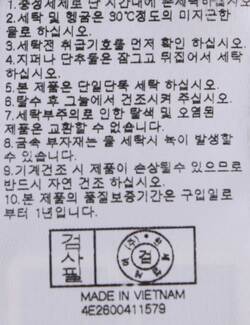 1.중성세제로 단 시간내에 손세탁하십시오
2.세탁 및 헹굼은 30℃정도의 미지근한
물로 하십시오.
3.세탁전 취급기호를 먼저 확인 하십시오.
4.지퍼나 단추물은 잠그고 뒤집어서 세탁
하십시오.
5.본 제품은 단일단독 세탁 하십시오.
6.탈수 후 그늘에서 건조시켜 주십시오.
7.세탁부주의로 인한 탈색 및 오염된
제품은 교환할 수 없습니다.
8.금속 부자재는 물 세탁시 녹이 발생할
수 있습니다.
9.기계건조 시 제품이 손상될수 있으므로
반드시 자연 건조 하십시오.
10.본 제품의 품질보증기간은 구입일로
부터 1년입니다.
검사필
(주)
검
MADE IN VIETNAM
4E2600411579